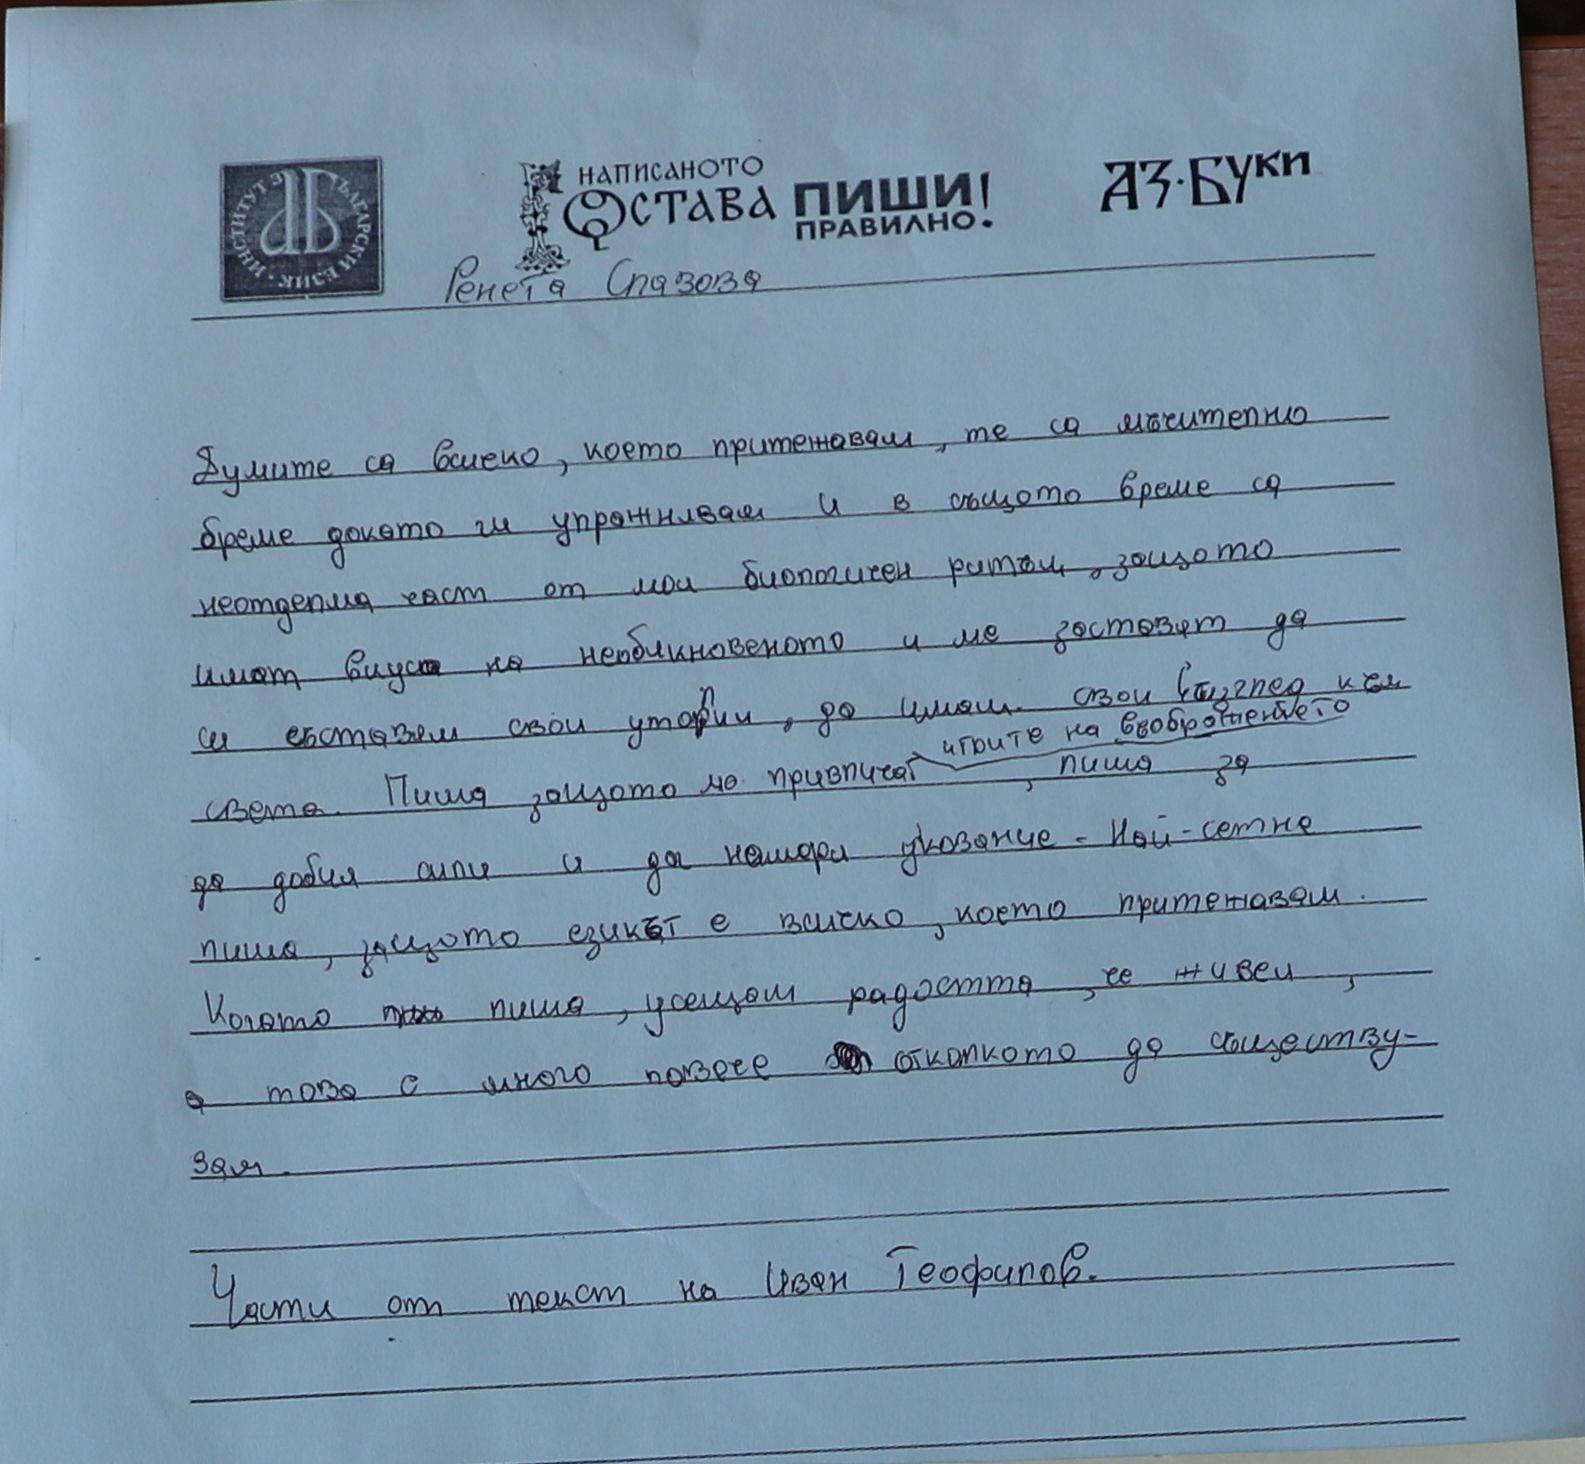 ИНСТИТУТ ЗА БЪЛГАРСКИ ЕЗИК
НАПИСАНОТО
ОСТАВА ПИШИ!
ПРАВИЛНО.
АЗ·БУКИ
Ренета Спазова
Думите са всичко, което притежавам, те са мъчително
бреме докато ги упражнявам и в същото време са
неотделима част от моя биологичен ритъм, защото
имат вкуса на необикновеното и ме заставят да
си съставям свои утопии, да имам свои възглед към
света. Пиша защото ме привличат игрите на въображението, пиша за
да добия сили и да намеря указание. Най-сетне
пиша, защото езикът е всичко, което притежавам.
Когато пиша, усещам радостта, че живея,
а това е много повече отколкото да съществу-
вам.
Части от текст на Иван Теофилов.